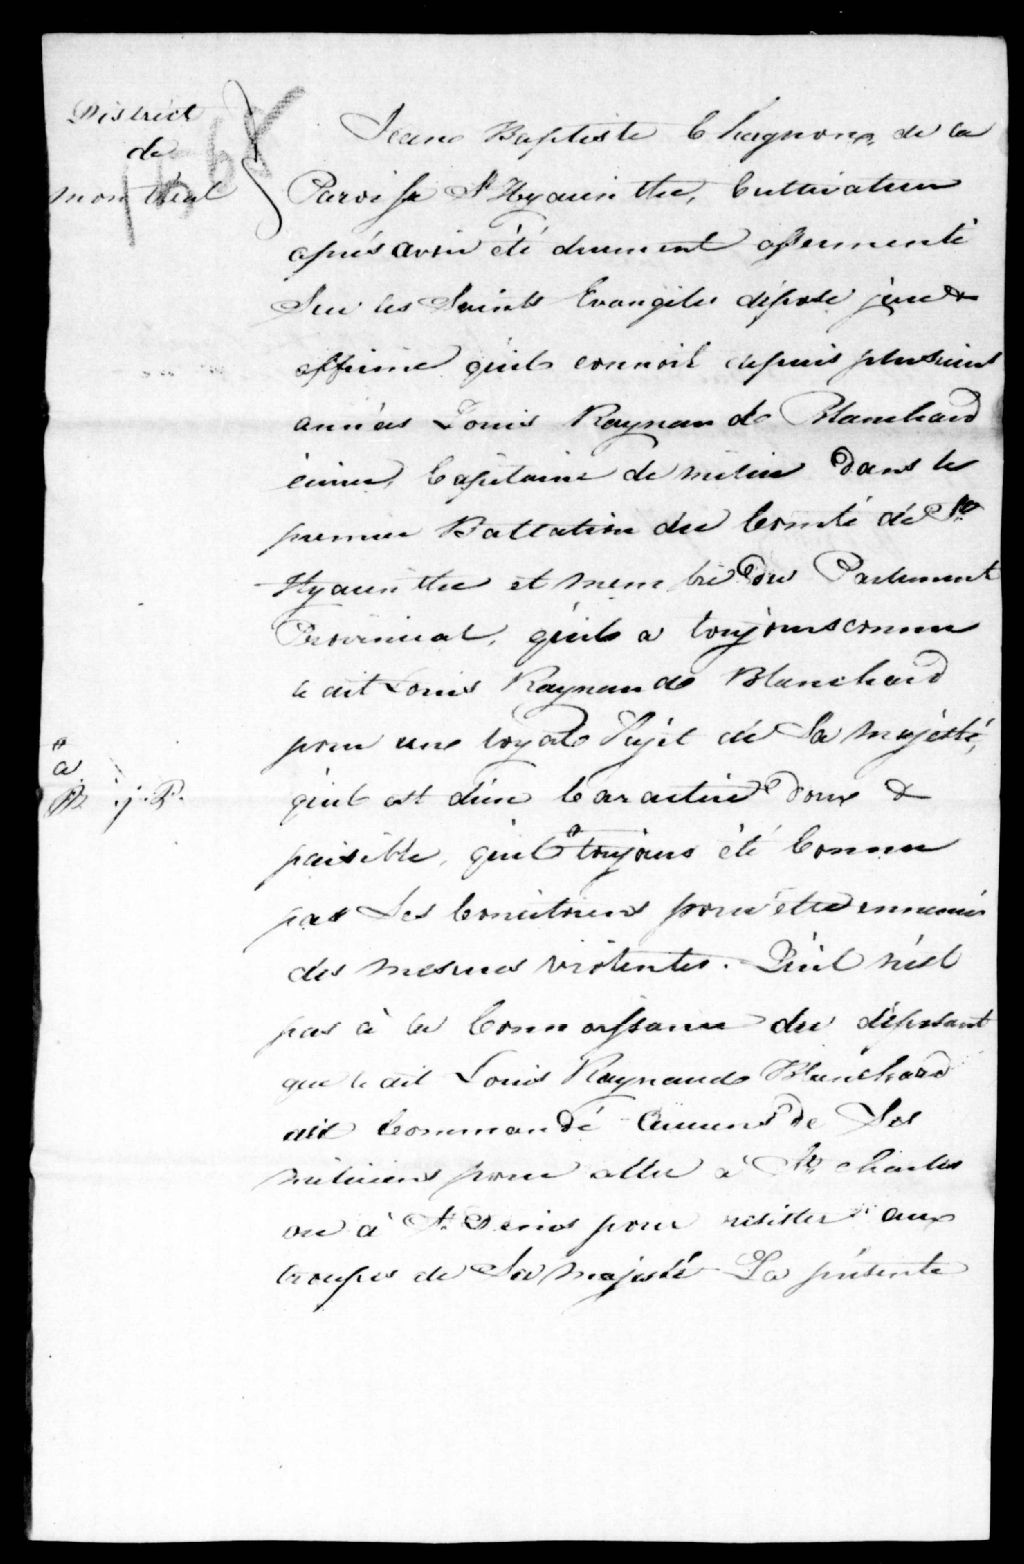 District
de
Montréal
1568
Jean Baptiste Chagnon, de la
Paroisse St Hyacinthe, Cultivateur
après avoir été duement assermenté
Sur les Saints Evangiles dépose jure &
affirme qu'il connoit depuis plusieurs
années Louis Raynaude Blanchard
écuier, Capitaine de milice dans le
premier Battation du Comté de St
Hyacinthe et membre du Parlement
Provincial, qu'il a toujours connu
le dit Louis Raynaude Blanchard
pour une loyale Sujet de Sa Majesté,
qu'il est d'un Caractère doux &
paisible, qu'il a toujours été Connu
par Ses Concitoiens pour être ennemi
des mesures violentes. Qu'il n'est
pas à la Connoissance du déposant
que le dit Louis Raynaude Blanchard
ait Commandé aucuns de Ses
miliciens pour aller à St Charles
ou à St Denis pour résister aux
troupes de Sa Majesté La présente
a
J. P.